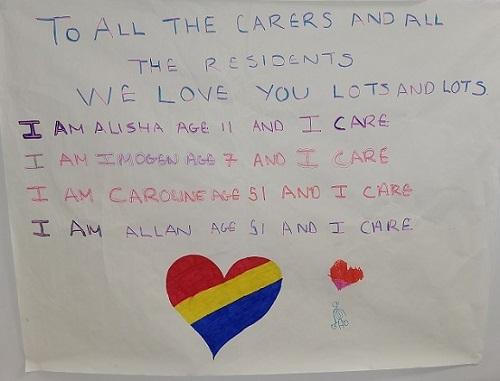 TO ALL THE CARERS AND ALL
THE RESIDENTS
WE LOVE YOU LOTS AND LOTS
I AM ALISHA AGE 11 AND I CARE
I AM IMOGEN AGE 7 AND I CARE
I AM CAROLINE AGE 51 AND I CARE
I AM ALLAN AGE 51 AND I CARE